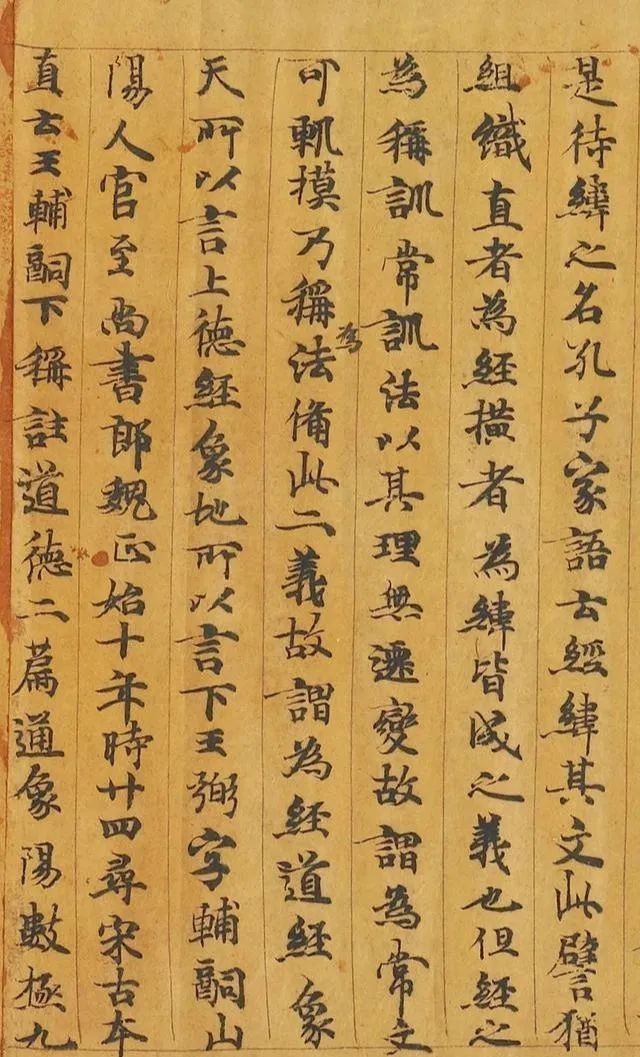 是待緯之名孔子家語云經緯其文此譬猶
組織直者為經橫者為緯皆成之義也但經之
為稱訓常訓法以其理無遷變故謂為常文
可軌摸乃稱為法俻此二義故謂為經道經象
天所以言上德經象地所以言下王弼字輔嗣山
陽人官至尚書郎魏正始十年時廿四尋宋古本
直云王輔嗣下稱註道德二篇通象陽數極九